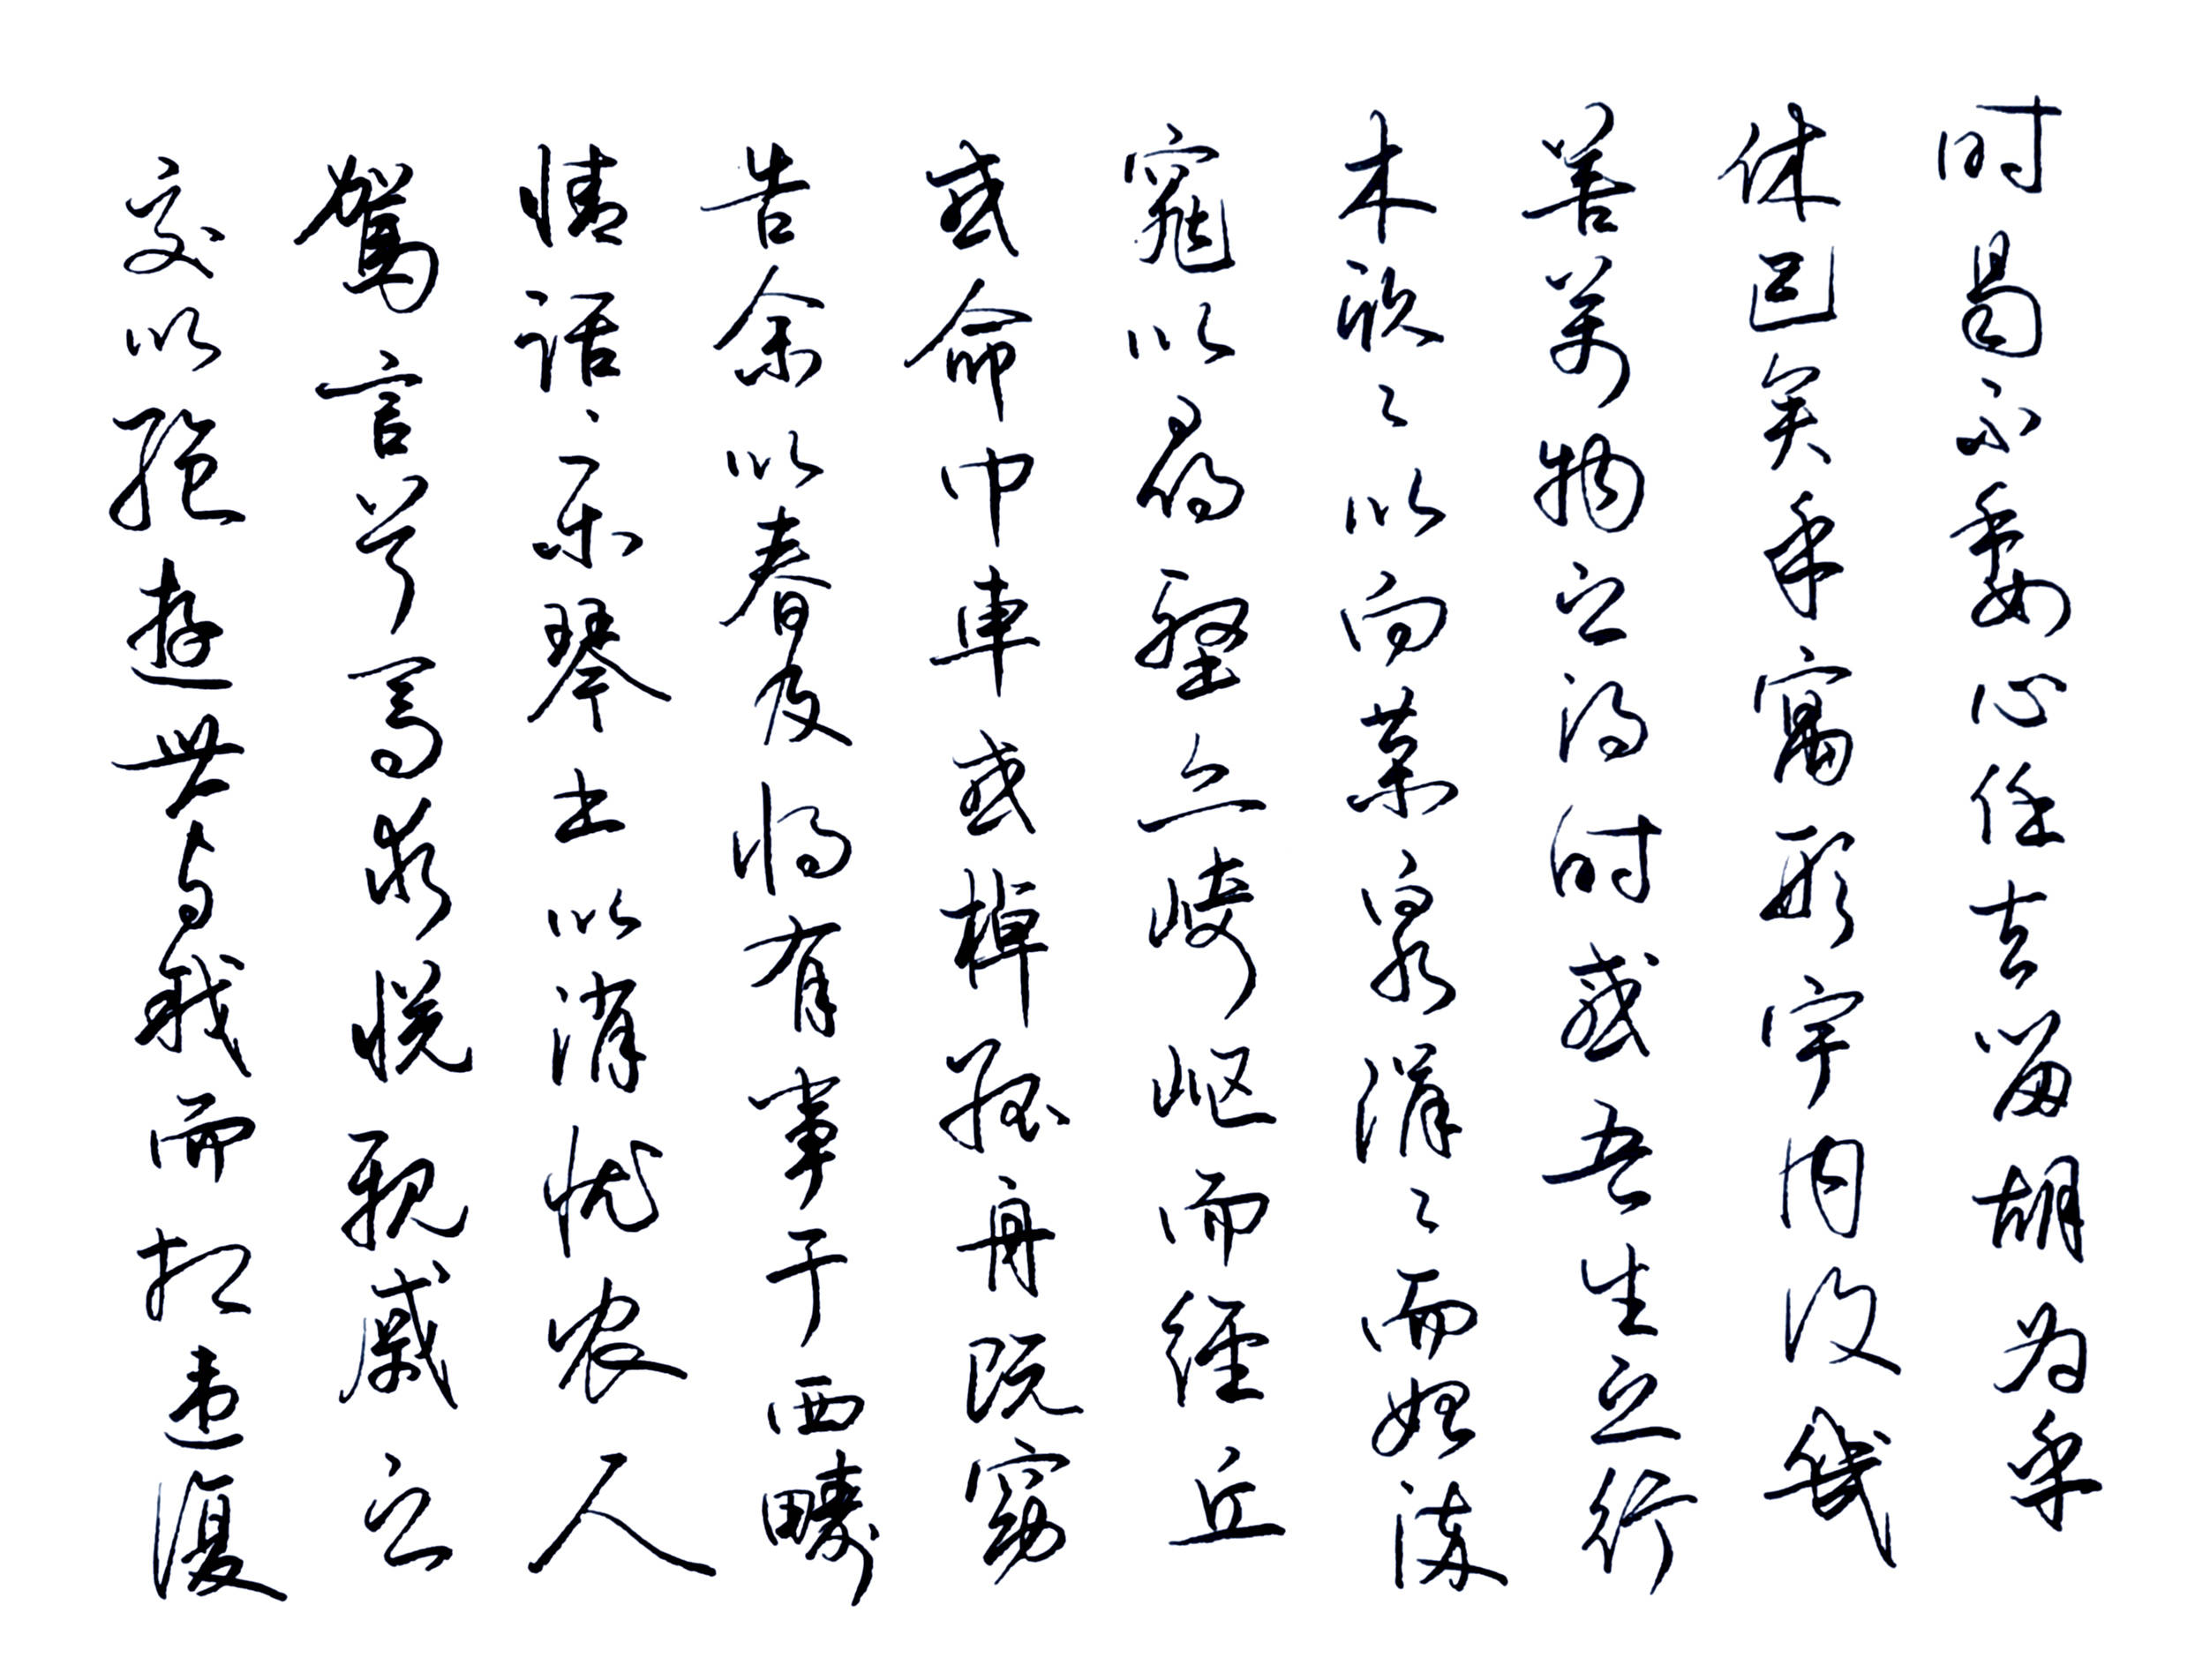 交以绝遊世与我而相违復
驾言兮焉求悦亲戚之
情话乐琴书以消忧农人
告余以春及将有事于西畴
或命巾車或棹孤舟既窈
窕以尋壑亦崎岖而经丘
木欣々以向荣泉涓々而始流
善萬物之得时感吾生之行
休已矣乎寓形宇内復幾
时曷不委心任去留胡为乎